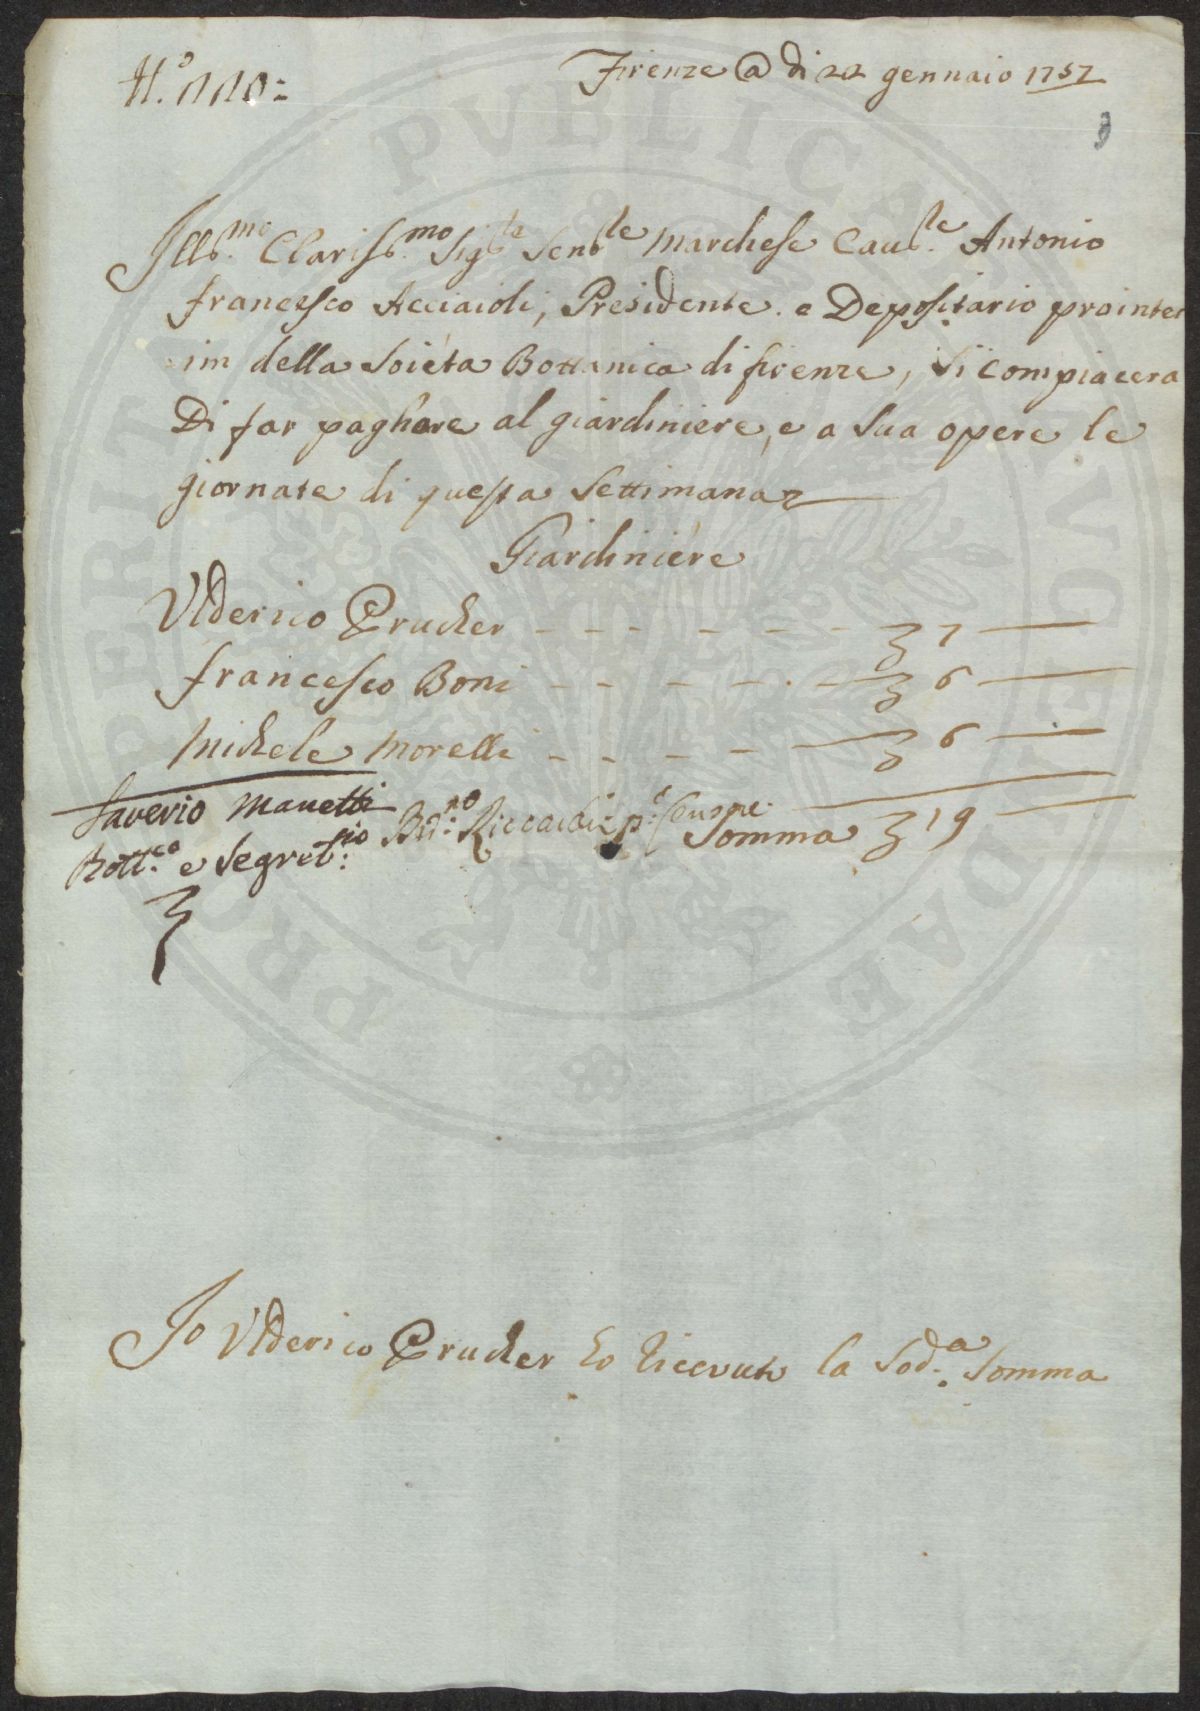 N.º 110:
Firenze @ di 22 gennaio 1757
Illb.mo Clarisb.mo Sigb.re Senb.le Marchese Caub.le Antonio
francesco Acciaioli, Presidente. e Depositario prointer
im della Soiéta Bottanica di firenze, Si compiacera
Di far paghare al giardiniere, e a Sua opere le
giornate di questa Settimana
Giardiniére
Vlderico Prucher - - - - - - 7
francesco Boni - - - - - 6
Michele Morelli - - - - 6
Saverio Manetti
Bott.co e Segret.rio
Somma 19
Io Vlderico Prucher ho Riceuuto la Sod.a Somma
PRO PERITATI PVBLICAE AVGENDAE